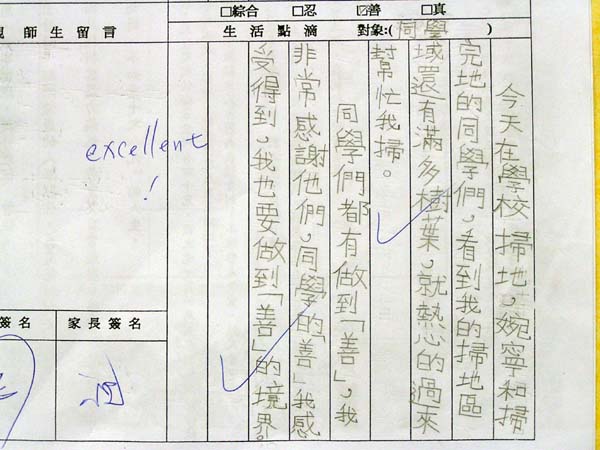 □綜合 □忍 ☑善 □真
師生留言
生活點滴 對象:(同學)
今天在學校掃地，婉寧和掃
完地的同學們，看到我的掃地區
域還有滿多樹葉，就熱心的過來
幫忙我掃。
同學們都有做到「善」，我
非常感謝他們，同學的「善」我感
受得到，我也要做到「善」的境界。
excellent
!
簽名
家長簽名